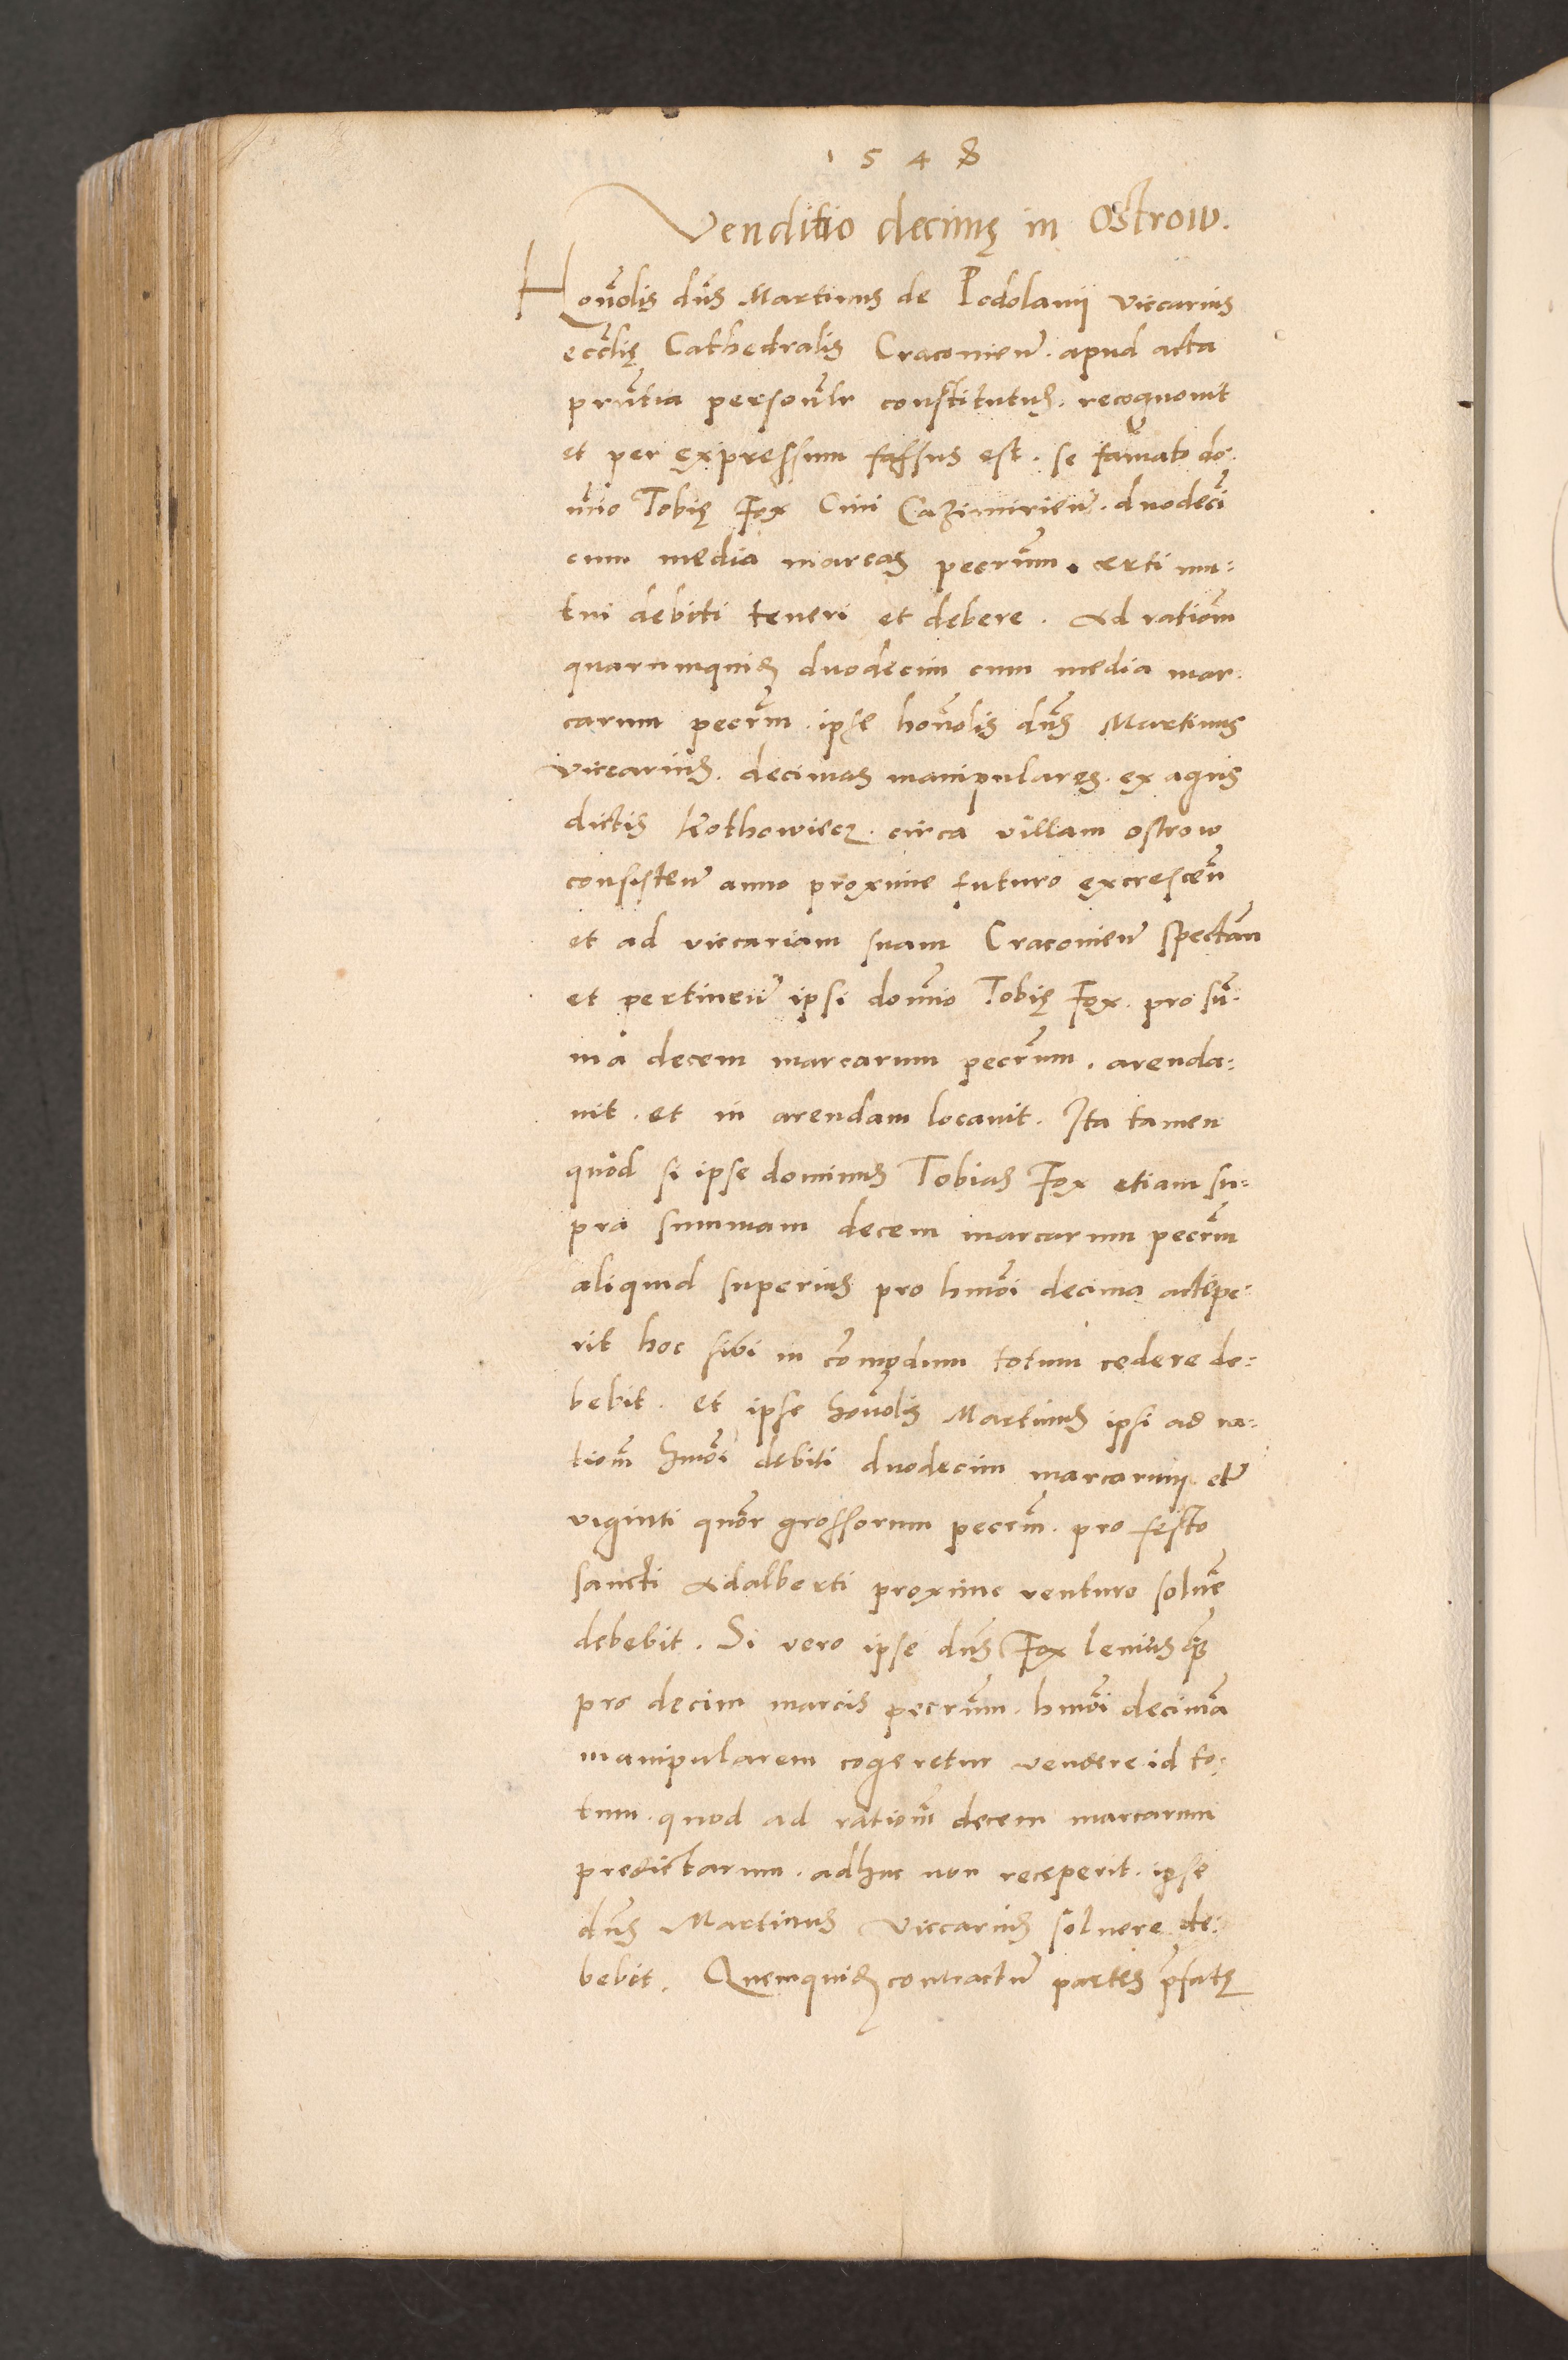 1548
Venditio decimę in Ostrow.
Honolis dns Martinus de Podolanij viccarius
ecclię Cathedralis Cracovien. apud acta
prntia personlr constitutus. recognovit
et per expressum fassus est. se famato do-
mio Tobię Fox Civi Cazimirien. duodeci
cum media marcas pecrum. certi mu-
tui debiti teneri et debere. Ad rationem
quarumquidem duodecim cum media mar-
carum pecrm. ipse honolis dns Martinus
viccarius. decimas manipulares. ex agris
dictis Kothowiecz. circa villam ostrow
consisten anno proxime futuro excrescen
et ad viccariam suam Cracovien spectan
et pertinen ipsi domio Tobię Fox. pro su-
ma decem marcarum pecrum. arenda-
vit. et in arendam locavit. Ita tamen
quod si ipse dominus Tobias Fox etiam su-
pra summam decem marcarum pecrm
aliquid superius pro hmoi decima accepe-
rit hoc sibi in comodum totum cedere de-
bebit. et ipse honolis Martinus ipsi ad ra-
tiom hmoi debiti duodecim marcarum et
viginti quor grossorum pecrm. pro festo
sancti Adalberti proxime venturo solvere
debebit. Si vero ipse dns Fox levius quam
pro decim marcis pecrum. hmoi decima
manipularem cogeretur vendere id to-
tum. quod ad rationem decem marcarum
predictarum. adhuc non receperit. ipse
dns Martinus viccarius solvere de-
bebit. Quemquidem contractum partes prefatę